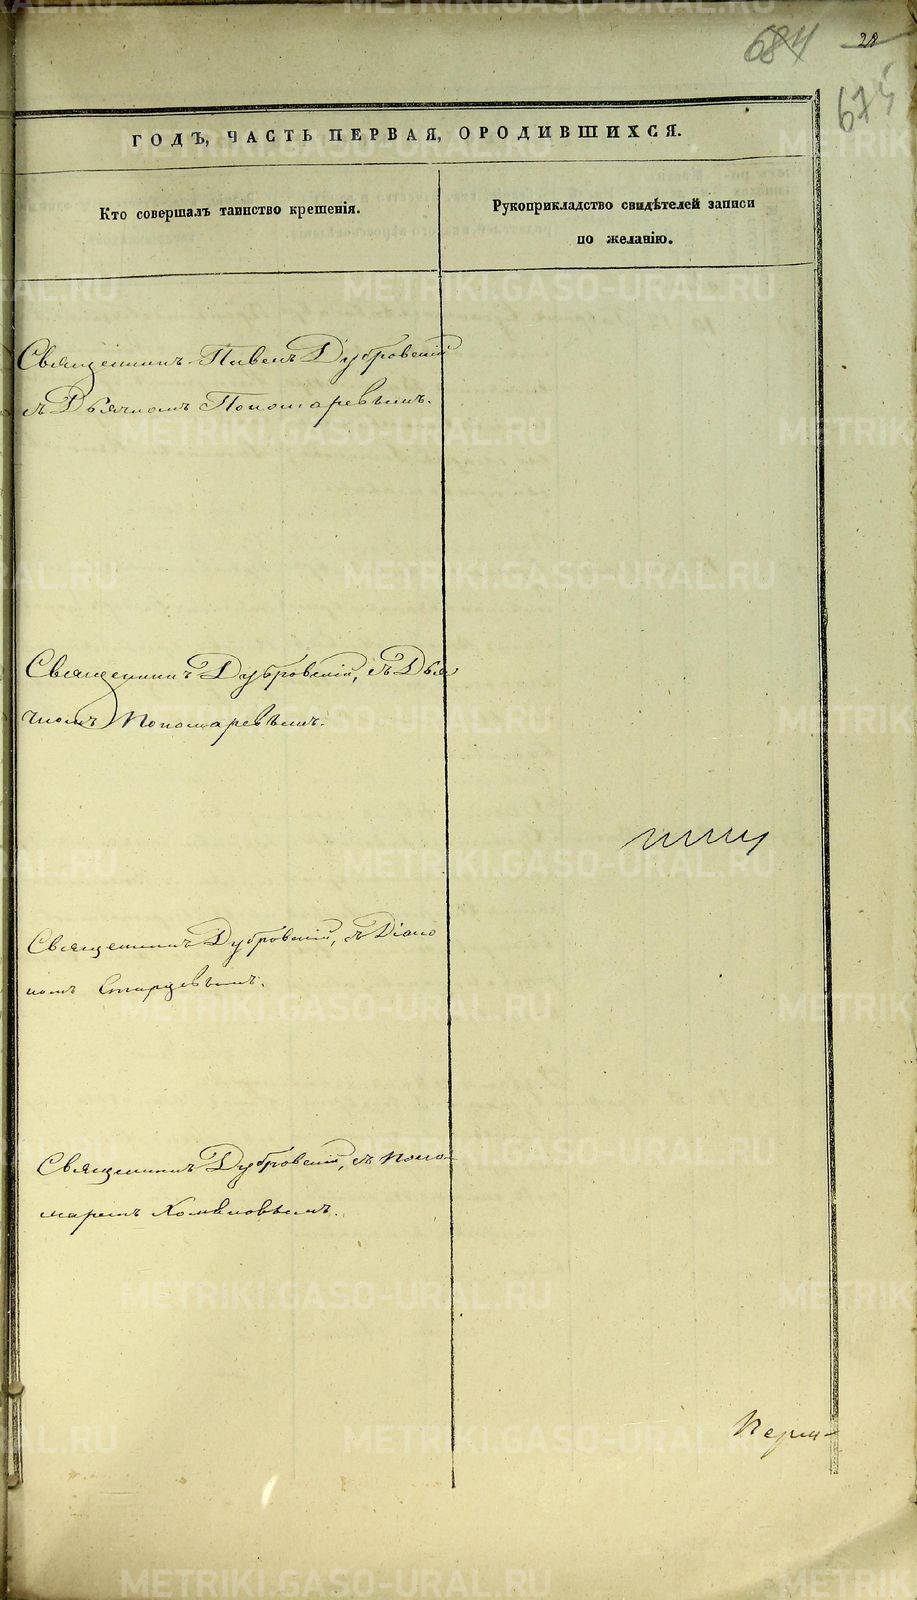 684 28
675
ГОДЪ, ЧАСТЬ ПЕРВАЯ, О РОДИВШИХСЯ.
Кто совершалъ таинство крещенія.
Рукоприкладство свидѣтелей записи
по желанію.
Священникъ Павелъ Дубровскій
съ Дьячкомъ Пономаревымъ.
Священникъ Дубровскій, съ Дья
чкомъ Пономаревымъ.
Священникъ Дубровскій, съ Діако
номъ Старцевымъ.
Священникъ Дубровскій, съ Поно-
маремъ Хомяковымъ.
Перм-
METRIKI.GASO-URAL.RU